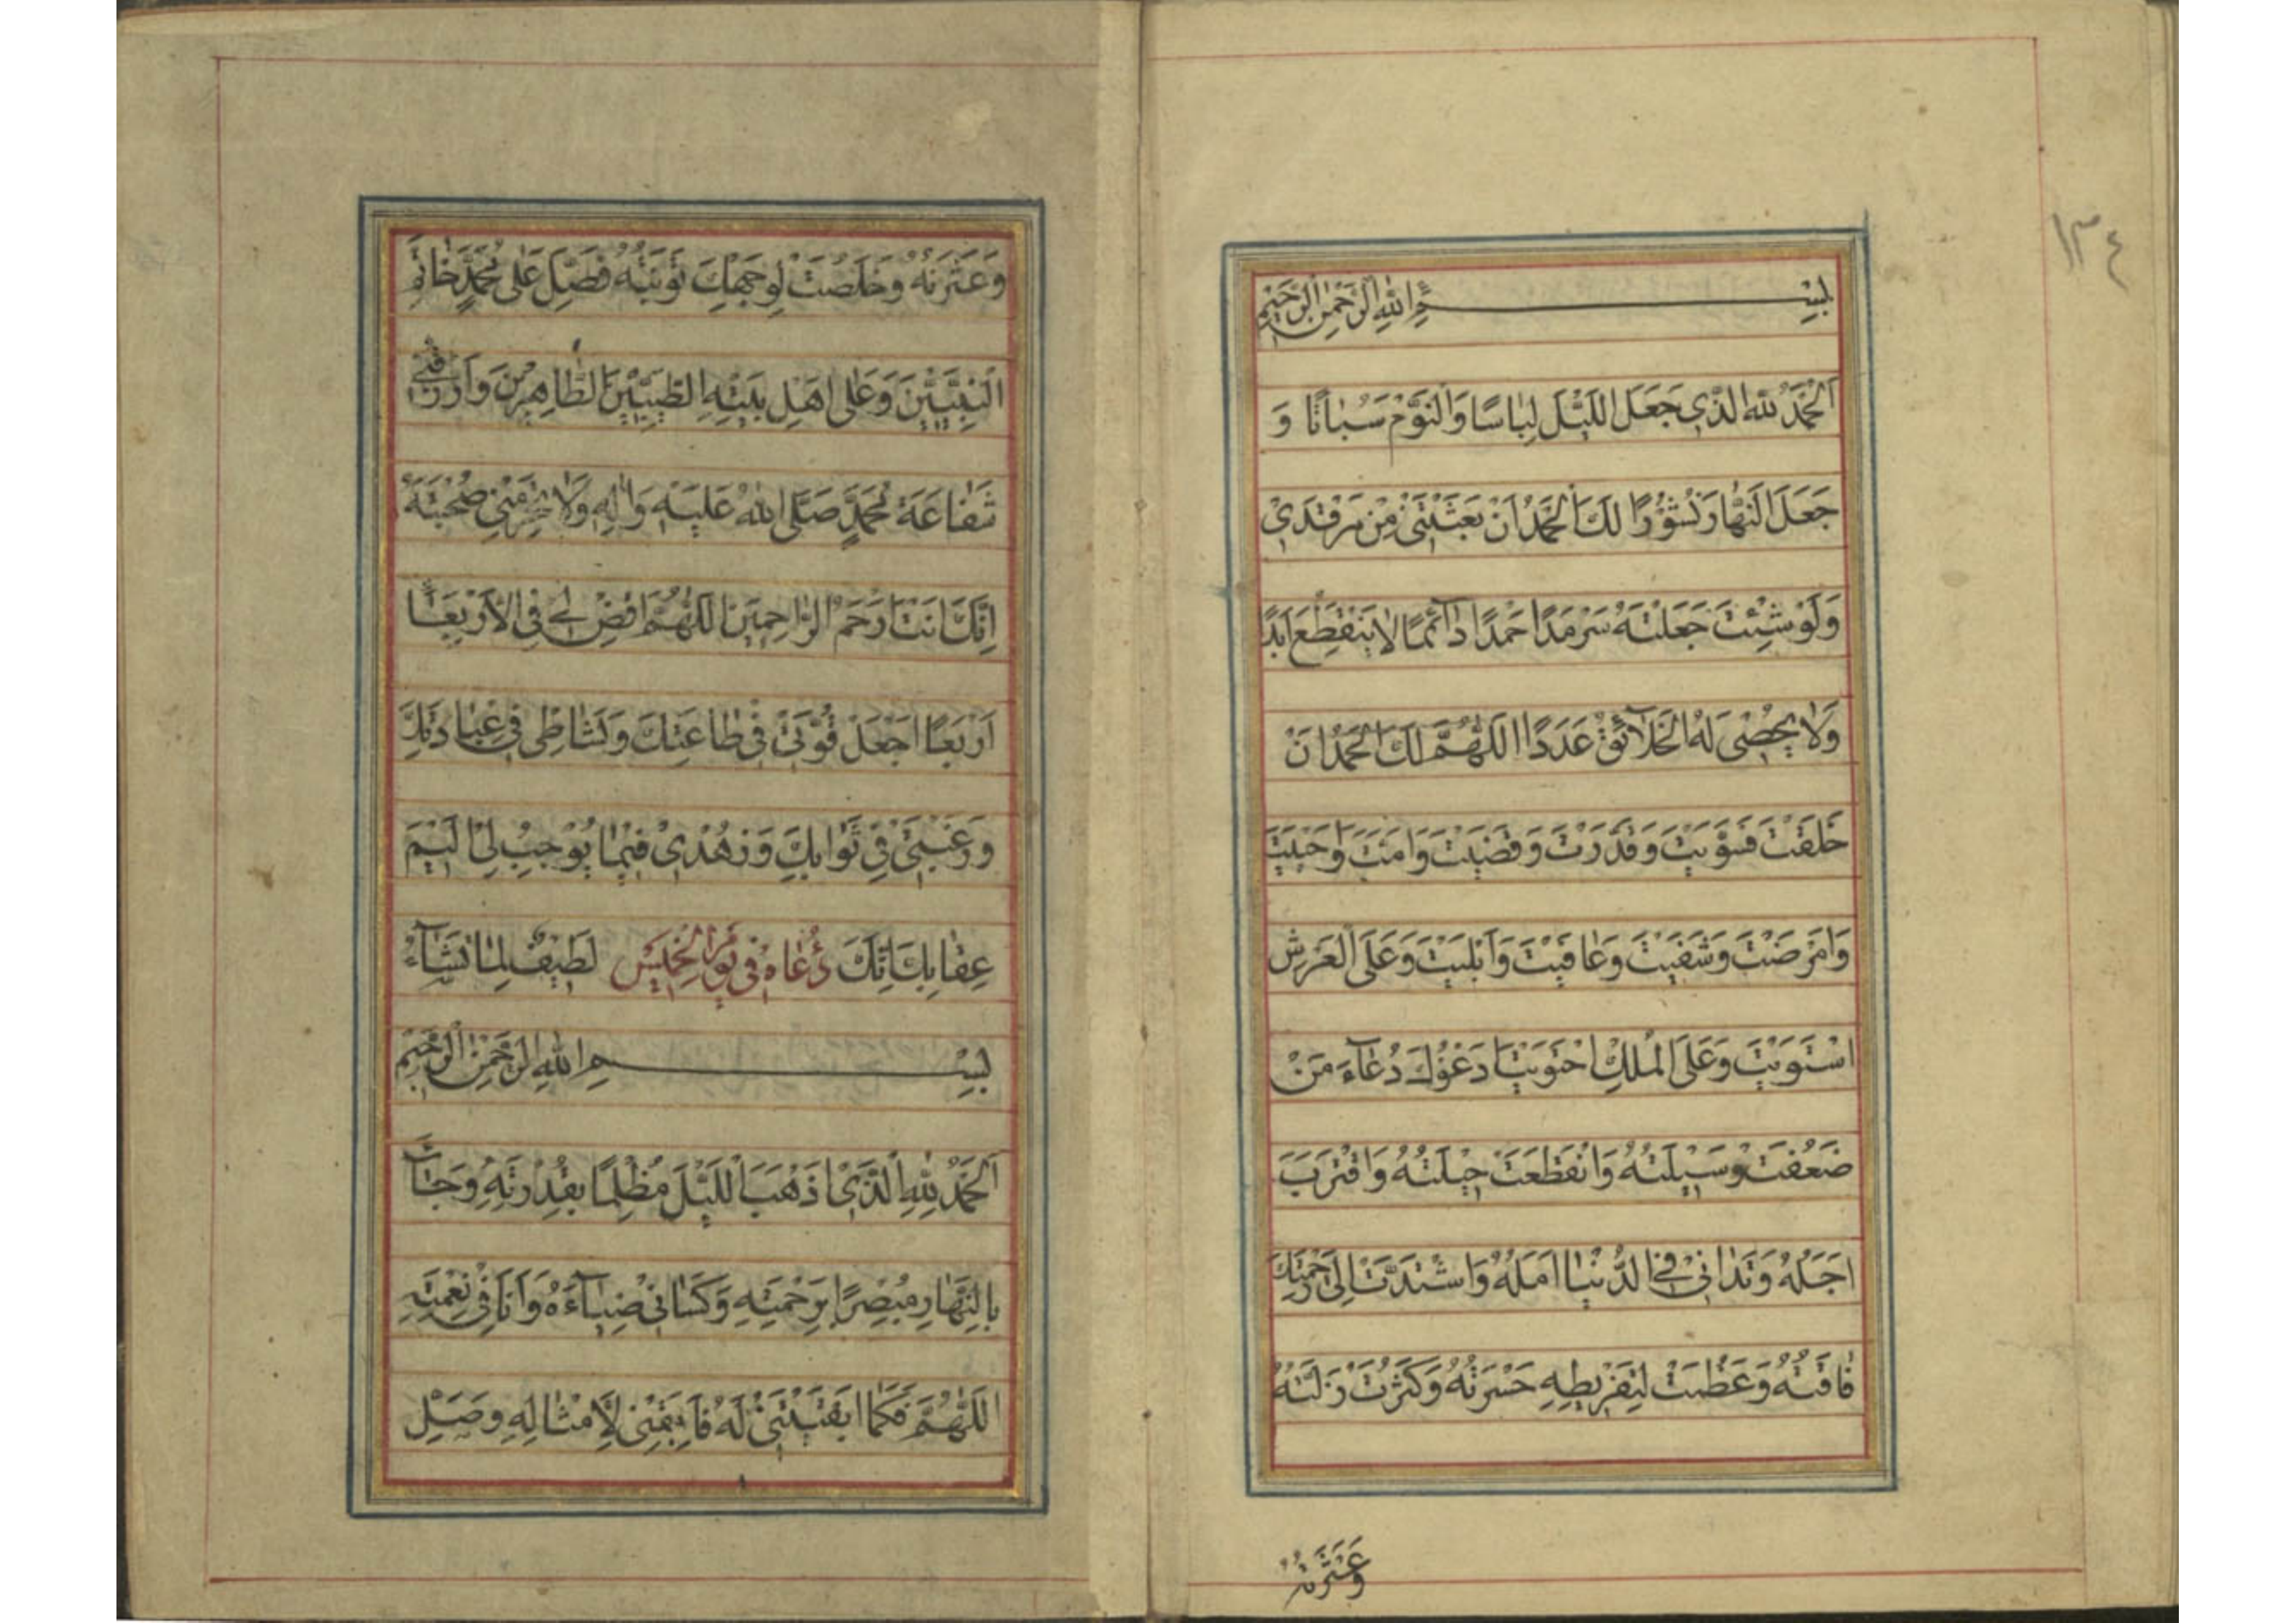 ١٣٤
بِسْــــــمِ اللهِ الرَّحْمٰنِ الرَّحِيْمِ
اَلْحَمْدُ لِلّٰهِ الَّذِى جَعَلَ اللَّيْلَ لِبَاسًا وَالنَّوْمَ سُبَاتًا وَ
جَعَلَ النَّهَارَ نُشُوْرًا لَكَ الْحَمْدُ اَنْ بَعَثْتَنِىْ مِنْ مَرْقَدِىْ
وَلَوْ شِئْتَ جَعَلْتَهُ سَرْمَدًا حَمْدًا دَآئِمًا لَا يَنْقَطِعُ اَبَدًا
وَلَا يُحْصِى لَهُ الْخَلَآئِقُ عَدَدًا اَللّٰهُمَّ لَكَ الْحَمْدُ اَنْ
خَلَقْتَ فَسَوَّيْتَ وَقَدَّرْتَ وَقَضَيْتَ وَاَمَتَّ وَاَحْيَيْتَ
وَاَمْرَضْتَ وَشَفَيْتَ وَعَافَيْتَ وَاَبْلَيْتَ وَعَلَى الْعَرْشِ
اسْتَوَيْتَ وَعَلَى الْمُلْكِ احْتَوَيْتَ اَدْعُوْكَ دُعَآءَ مَنْ
ضَعُفَتْ وَسِيْلَتُهُ وَانْقَطَعَتْ حِيْلَتُهُ وَاقْتَرَبَ
اَجَلُهُ وَتَدَانٰى فِى الدُّنْيَا اَمَلُهُ وَاشْتَدَّتْ اِلٰى رَحْمَتِكَ
فَاقَتُهُ وَعَظُمَتْ لِتَفْرِيْطِهِ حَسْرَتُهُ وَكَثُرَتْ زَلَّتُهُ
وَعَثْرَتُهُ
وَعَثْرَتُهُ وَخَلَصَتْ لِوَجْهِكَ تَوْبَتُهُ فَصَلِّ عَلٰى مُحَمَّدٍ خَاتَمِ
النَّبِيِّيْنَ وَعَلٰى اَهْلِ بَيْتِهِ الطَّيِّبِيْنَ الطَّاهِرِيْنَ وَارْزُقْنِىْ
شَفَاعَةَ مُحَمَّدٍ صَلَّى اللهُ عَلَيْهِ وَاٰلِهِ وَلَا تَحْرِمْنِىْ صُحْبَتَهُ
اِنَّكَ اَنْتَ اَرْحَمُ الرَّاحِمِيْنَ اَللّٰهُمَّ اقْضِ لِىْ فِى الْاَرْبِعَآءِ
اَرْبَعًا اجْعَلْ قُوَّتِىْ فِىْ طَاعَتِكَ وَنَشَاطِىْ فِىْ عِبَادَتِكَ
وَرَغْبَتِىْ فِىْ ثَوَابِكَ وَزُهْدِىْ فِيْمَا يُوْجِبُ لِىْ اَلِيْمَ
عِقَابِكَ اِنَّكَ دُعَاهُ فِى يَوْمِ الْخَمِيْسِ لَطِيْفٌ لِمَا تَشَآءُ
بِسْــــــمِ اللهِ الرَّحْمٰنِ الرَّحِيْمِ
اَلْحَمْدُ لِلّٰهِ الَّذِىْ اَذْهَبَ اللَّيْلَ مُظْلِمًا بِقُدْرَتِهِ وَجَآءَ
بِالنَّهَارِ مُبْصِرًا بِرَحْمَتِهِ وَكَسَانِىْ ضِيَآءَهُ وَاَنَا فِىْ نِعْمَتِهِ
اَللّٰهُمَّ فَكَمَا اَبْقَيْتَنِىْ لَهُ فَاَبْقِنِىْ لِاَمْثَالِهِ وَصَلِّ